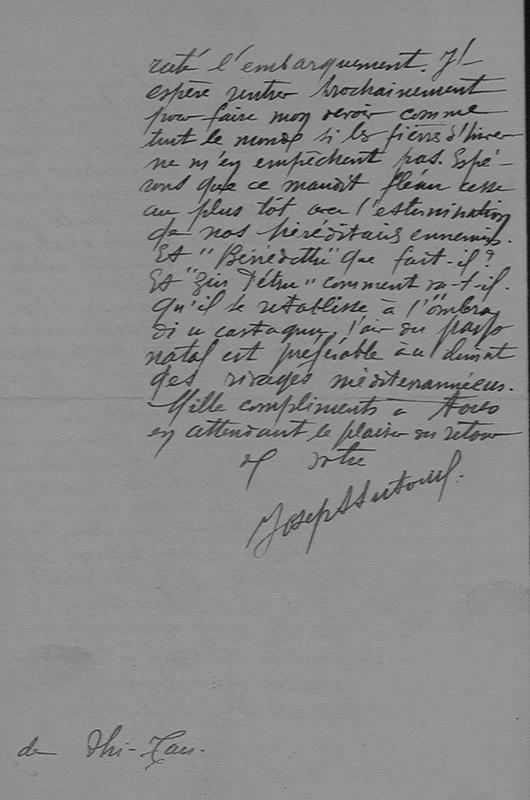 raté l'embarquement. J'-
espère rentrer prochainement
pour faire mon devoir comme
tout le monde si les fièvres d'hiver
ne m'en empêchent pas. Espé-
rons que ce maudit fléau cesse
au plus tôt avec l'estermination
de nos héréditaires ennemis.
Et "Benedetti" que fait-il?
Et "Ziu Pétru" comment va-t-il.
qu'il se retablisse à l'"ombra
di u castagnu, l'air du pays
natal est préférable au climat
des rivages méditerannéens.
Mille compliments a
en attendant le plaisir du retour
votre
Joseph
de Thi-